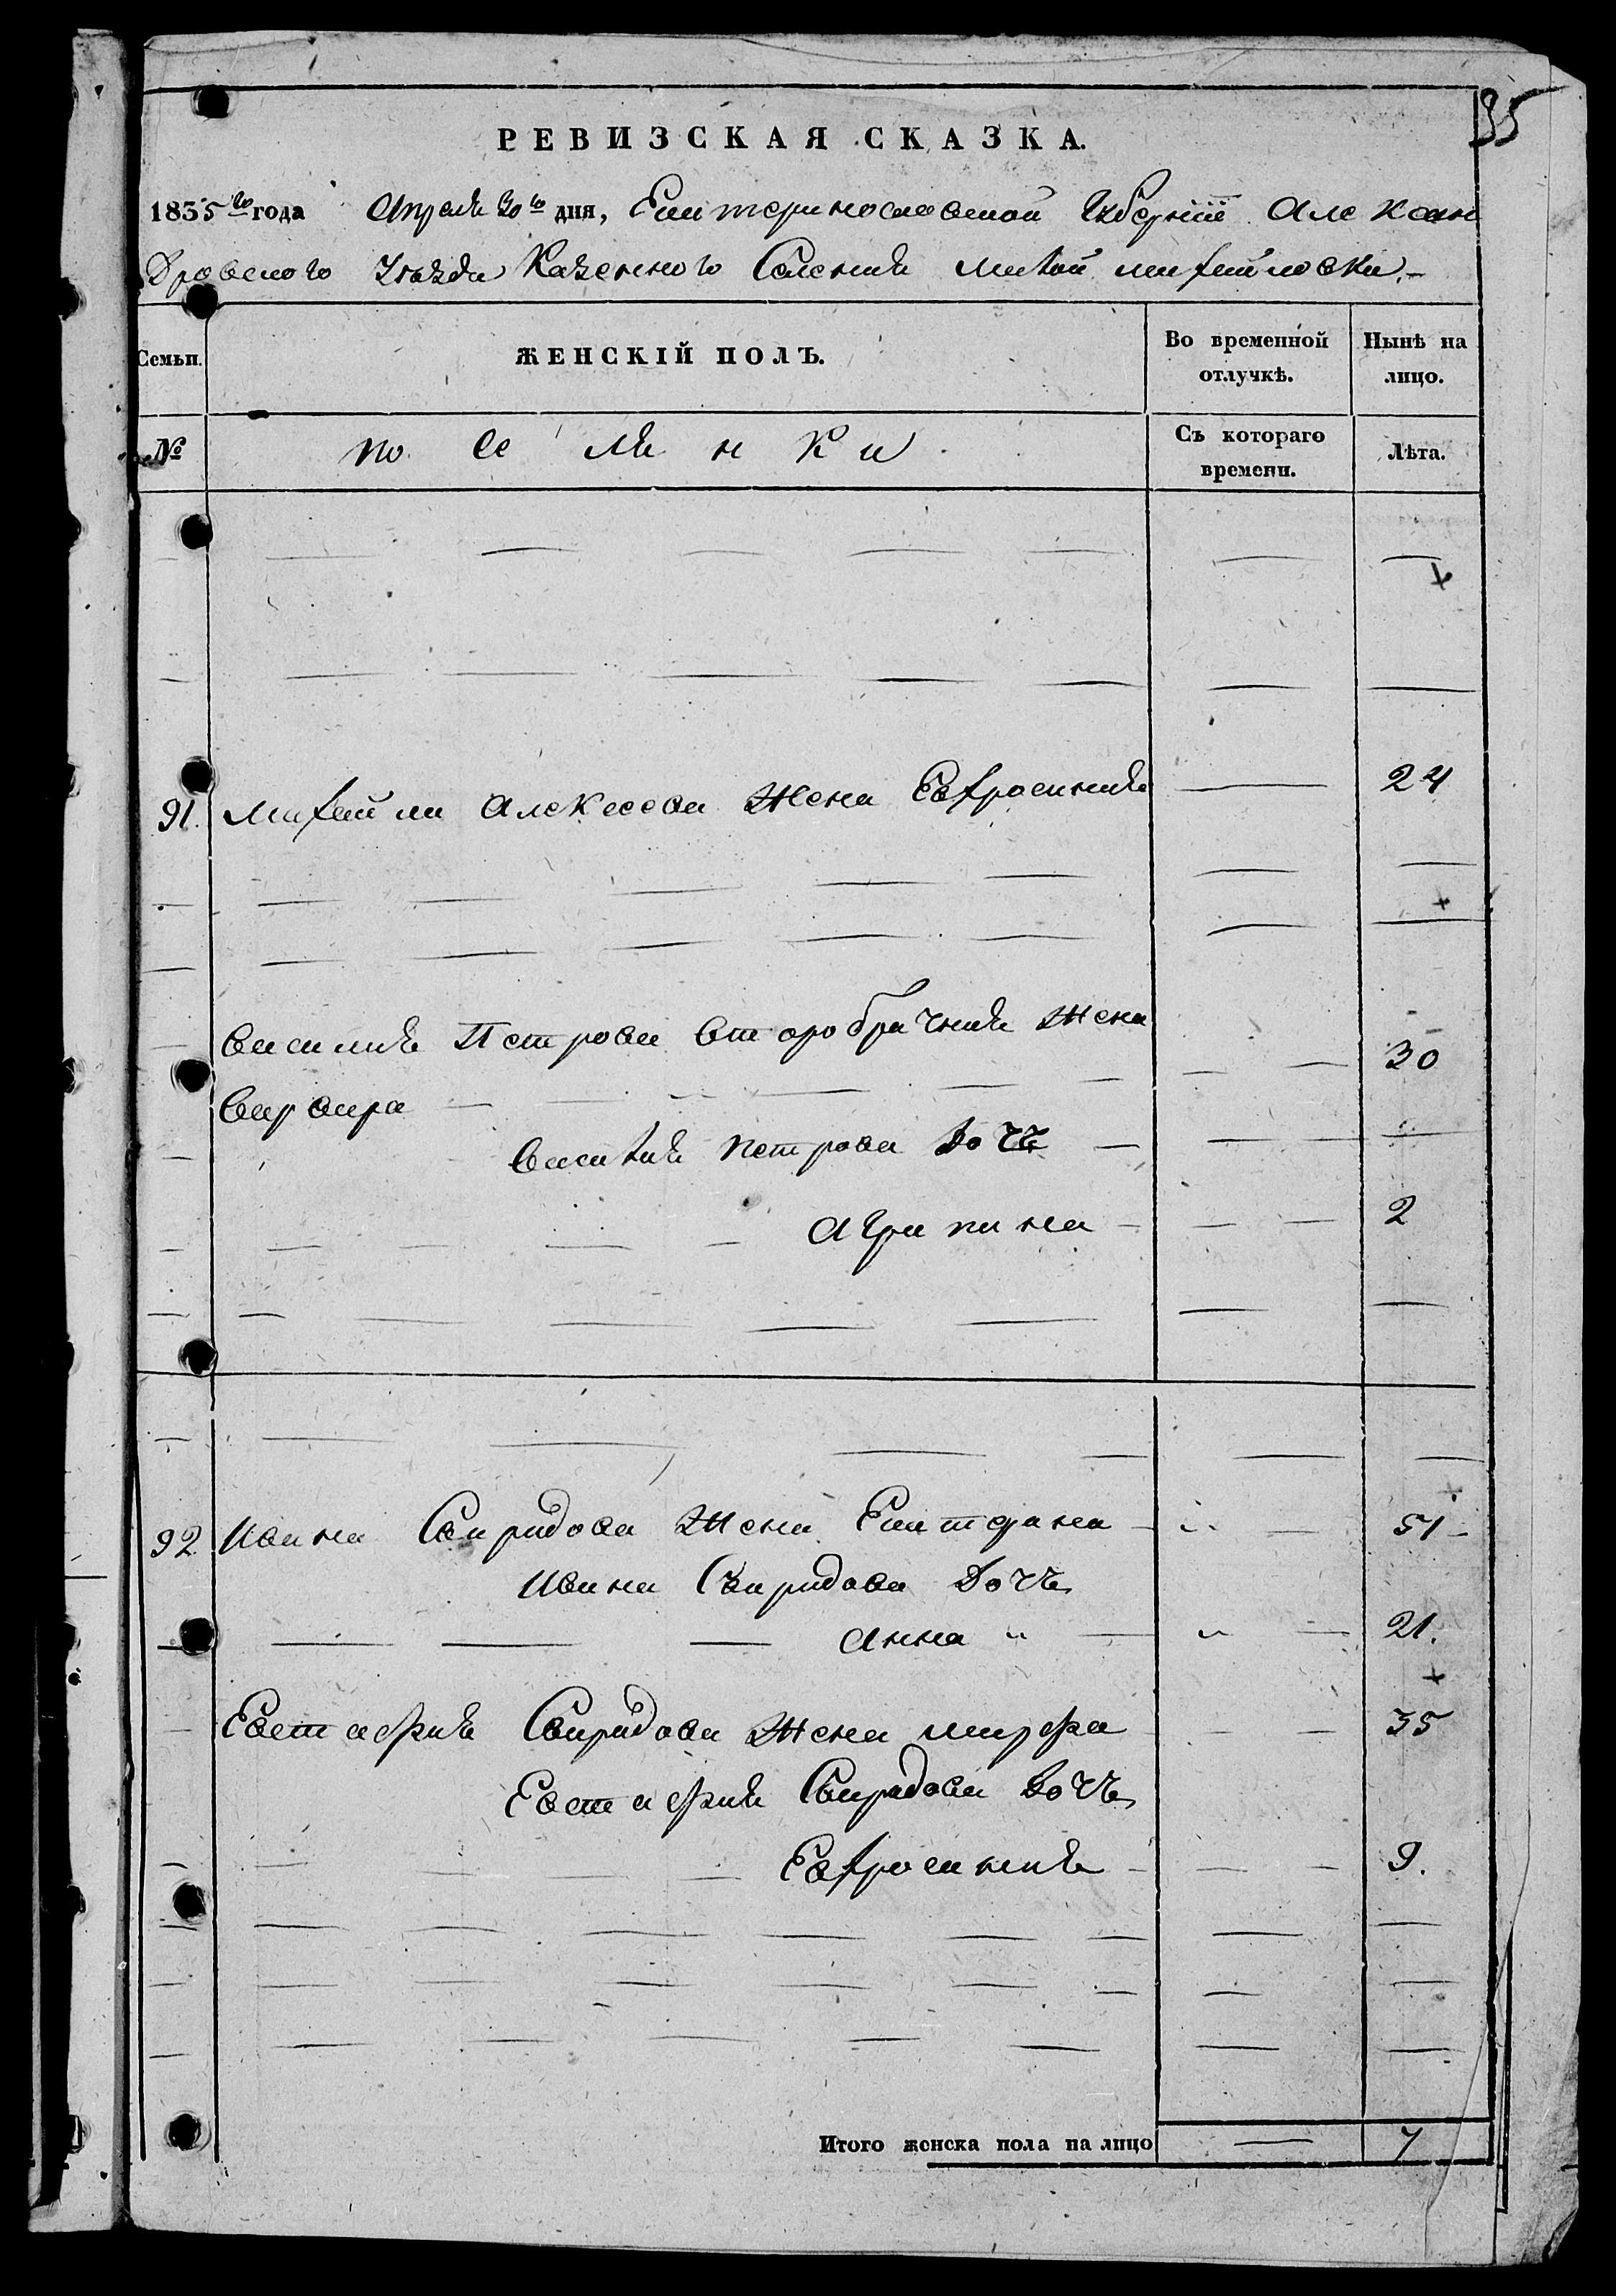 35
РЕВИЗСКАЯ СКАЗКА.
1835 го года Апреля 30 го дня, Екатеринославской Губернiи Алексан
дровского Уезда Казенного Селения Малой михайловки.
Семьи. ЖЕНСКІЙ ПОЛЪ. Во временной отлучкѣ. Нынѣ на лицо.
№ поселянки Съ котораго времени. Лѣта.
91. михайла Алексеева жена Евфросиния 24
Василия Петрова второбрачная жена
Варвара 30
Василия Петрова дочь
Агрипина 2
92. Ивана Свиридова жена Екатерина 51
Ивана Свиридова дочь
Анна 21.
Евстафия Свиридова жена марфа 35
Евстафия Свиридова дочь
Евфросиния 9.
Итого женска пола на лицо 7